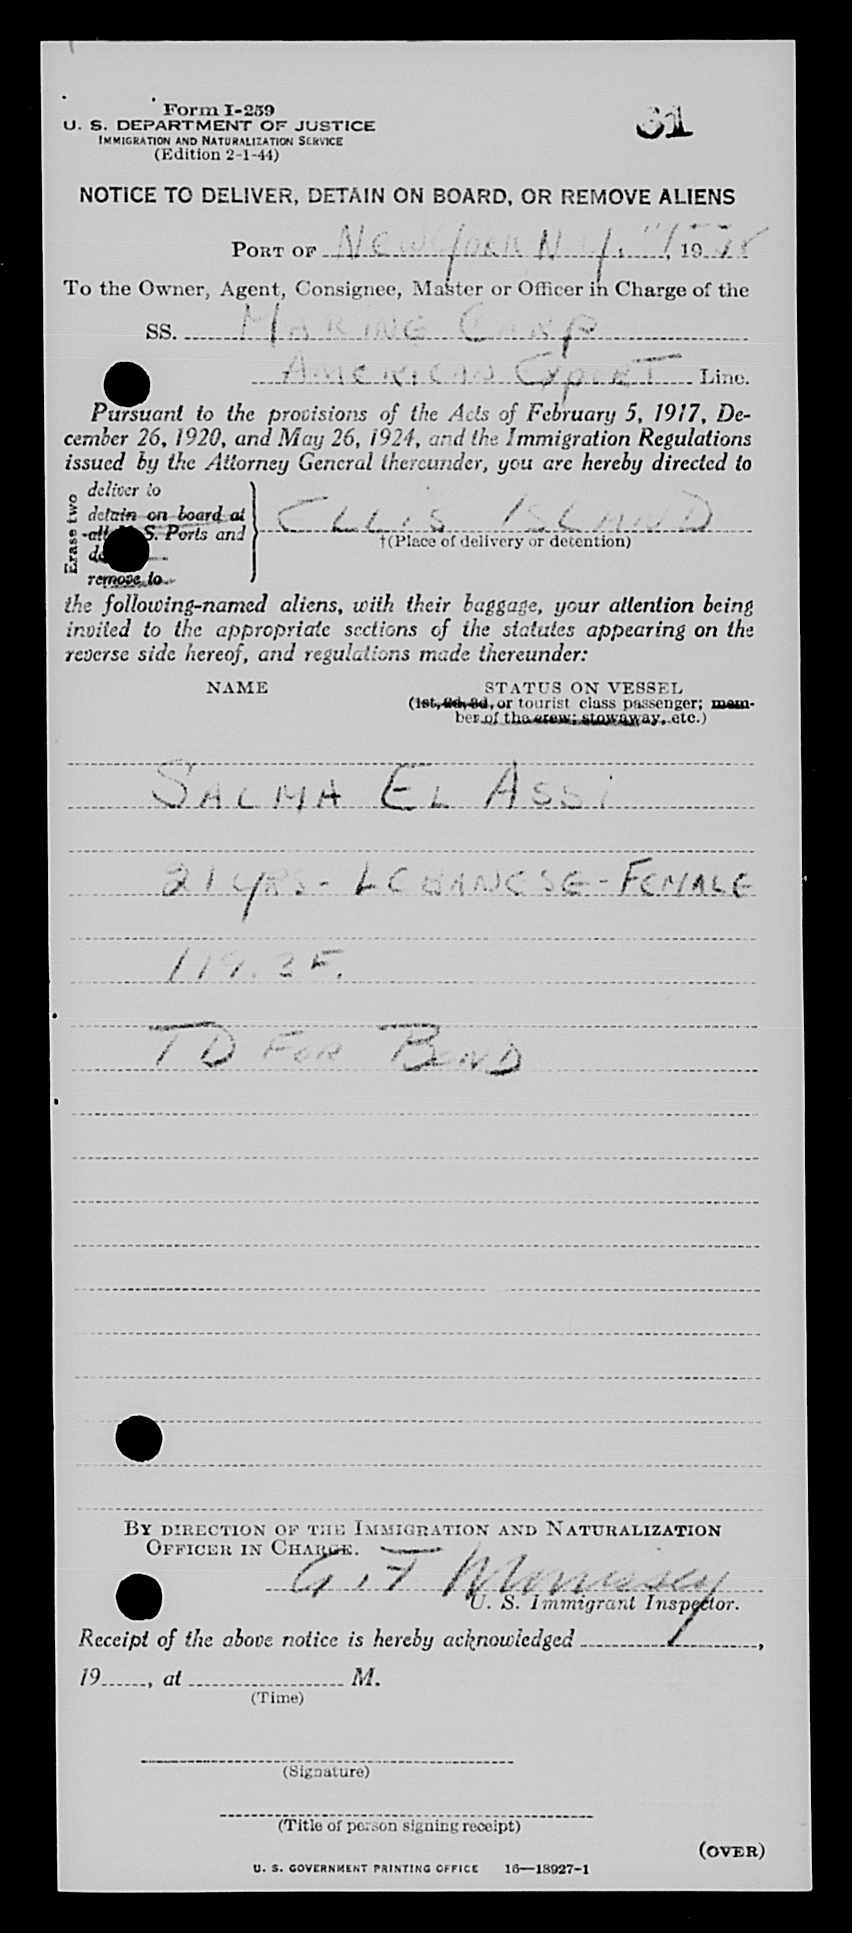 Form I-259
61
U. S. DEPARTMENT OF JUSTICE
IMMIGRATION AND NATURALIZATION SERVICE
(Edition 2-1-44)
NOTICE TO DELIVER, DETAIN ON BOARD, OR REMOVE ALIENS
PORT OF New York N.Y., 1948
To the Owner, Agent, Consignee, Master or Officer in Charge of the
SS. MARINE CARP
AMERICAN EXPORT Line.
Pursuant to the provisions of the Acts of February 5, 1917, De-
cember 26, 1920, and May 26, 1924, and the Immigration Regulations
issued by the Attorney General thereunder, you are hereby directed to
Erase two
deliver to
detain on board at
all U. S. Ports and
remove to
ELLIS ISLAND
†(Place of delivery or detention)
the following-named aliens, with their baggage, your attention being
invited to the appropriate sections of the statutes appearing on the
reverse side hereof, and regulations made thereunder:
NAME STATUS ON VESSEL
(1st, 2d, 3d, or tourist class passenger; mem-
ber of the crew; stowaway, etc.)
SALMA EL ASSI
21 yrs - LEBANESE - FEMALE
TD FOR BOND
BY DIRECTION OF THE IMMIGRATION AND NATURALIZATION
OFFICER IN CHARGE.
G. F. Morrissey
U. S. Immigrant Inspector.
Receipt of the above notice is hereby acknowledged ,
19 , at M.
(Time)
(Signature)
(Title of person signing receipt)
(OVER)
U. S. GOVERNMENT PRINTING OFFICE 16—18927-1